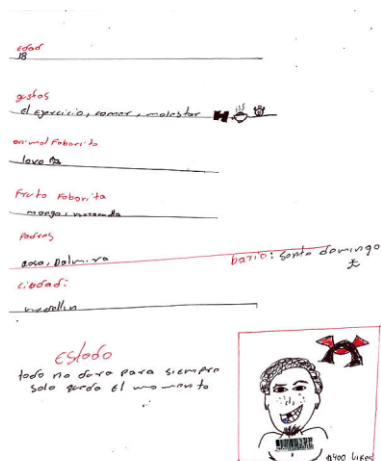 edad
18
gustos
el ejercicio, comer, molestar
animal Faborito
lovo
Fruto Faborita
mango, manzana
Padres
rosa, Dalmira
barrio: santo domingo
ciudad:
medellin
Estado
todo no dura para siempre
solo queda el momento
1400 likes